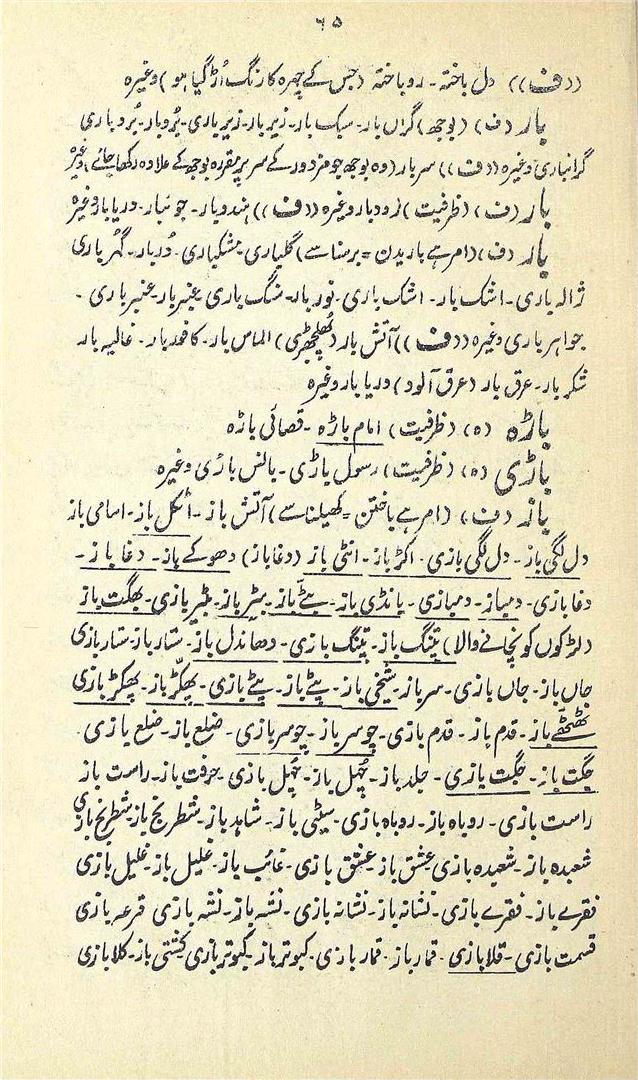 ۶۵
((ف)) دل باختہ۔ روباختہ (جس کے چہرہ کا رنگ اُڑ گیا ہو) وغیرہ
بار (ف) (بوجھ) گراں بار۔ سبک بار۔ زیر بار۔ زیر باری۔ بُردبار۔ بُردباری
گرانباری وغیرہ ((ف)) سربار (وہ بوجھ جو مزدور کے سر پر مقررہ بوجھ کے علاوہ رکھا جائے) وغیرہ
بار (ف) (ظرفیت) رودبار وغیرہ ((ف)) ہندوبار۔ جوئبار۔ دریابار وغیرہ
بار (ف) (امر ہے باریدن = برسنا سے) گلباری۔ مشکباری۔ دُربار۔ گہرباری
ژالہ باری۔ اشک بار۔ اشک باری۔ نور بار۔ سنگ باری۔ عنبر بار۔ عنبر باری۔
جواہر باری وغیرہ ((ف)) آتش بار (پھلجھڑی) الماس بار۔ کافور بار۔ غالیہ بار
شکر بار۔ عرق بار (عرق آلود) دریا بار وغیرہ
باڑہ (ہ) (ظرفیت) امام باڑہ۔ قصائی باڑہ
باڑی (ہ) (ظرفیت) رسول باڑی۔ بانس باڑی وغیرہ
باز (ف) (امر ہے باختن = کھیلنا سے) آتش باز۔ اٹکل باز۔ اسامی باز
دل لگی باز۔ دل لگی بازی۔ اکڑ باز۔ انٹی باز (دغاباز) دھوکے باز۔ دغا باز۔
دغا بازی۔ دمباز۔ دمبازی۔ پانڈی باز۔ بٹے باز۔ بٹیر باز۔ بٹیر بازی۔ بھگت باز
(لڑکوں کو نچانے والا) پتنگ باز۔ پتنگ بازی۔ دھاندل باز۔ ستار باز۔ ستار بازی
جاں باز۔ جاں بازی۔ سر باز۔ شیخی باز۔ پٹے باز۔ پٹے بازی۔ پھکڑ باز۔ پھکڑ بازی
ٹھٹھے باز۔ قدم باز۔ قدم بازی۔ چوسر باز۔ چوسر بازی۔ ضلع باز۔ ضلع بازی۔
جگت باز۔ جگت بازی۔ جلد باز۔ چُہل باز۔ چُہل بازی۔ حرفت باز۔ راست باز
راست بازی۔ روباہ باز۔ روباہ بازی۔ سیٹی باز۔ شاہد باز۔ شطرنج باز۔ شطرنج بازی
شعبدہ باز۔ شعبدہ بازی۔ عشق باز۔ عشق بازی۔ غائب باز۔ غلیل باز۔ غلیل بازی
فقرے باز۔ فقرے بازی۔ نشانہ باز۔ نشانہ بازی۔ نشہ باز۔ نشہ بازی۔ قرعہ بازی
قسمت بازی۔ قلابازی۔ قمار باز۔ قمار بازی۔ کبوتر باز۔ کبوتر بازی۔ کشتی باز۔ کلابازی